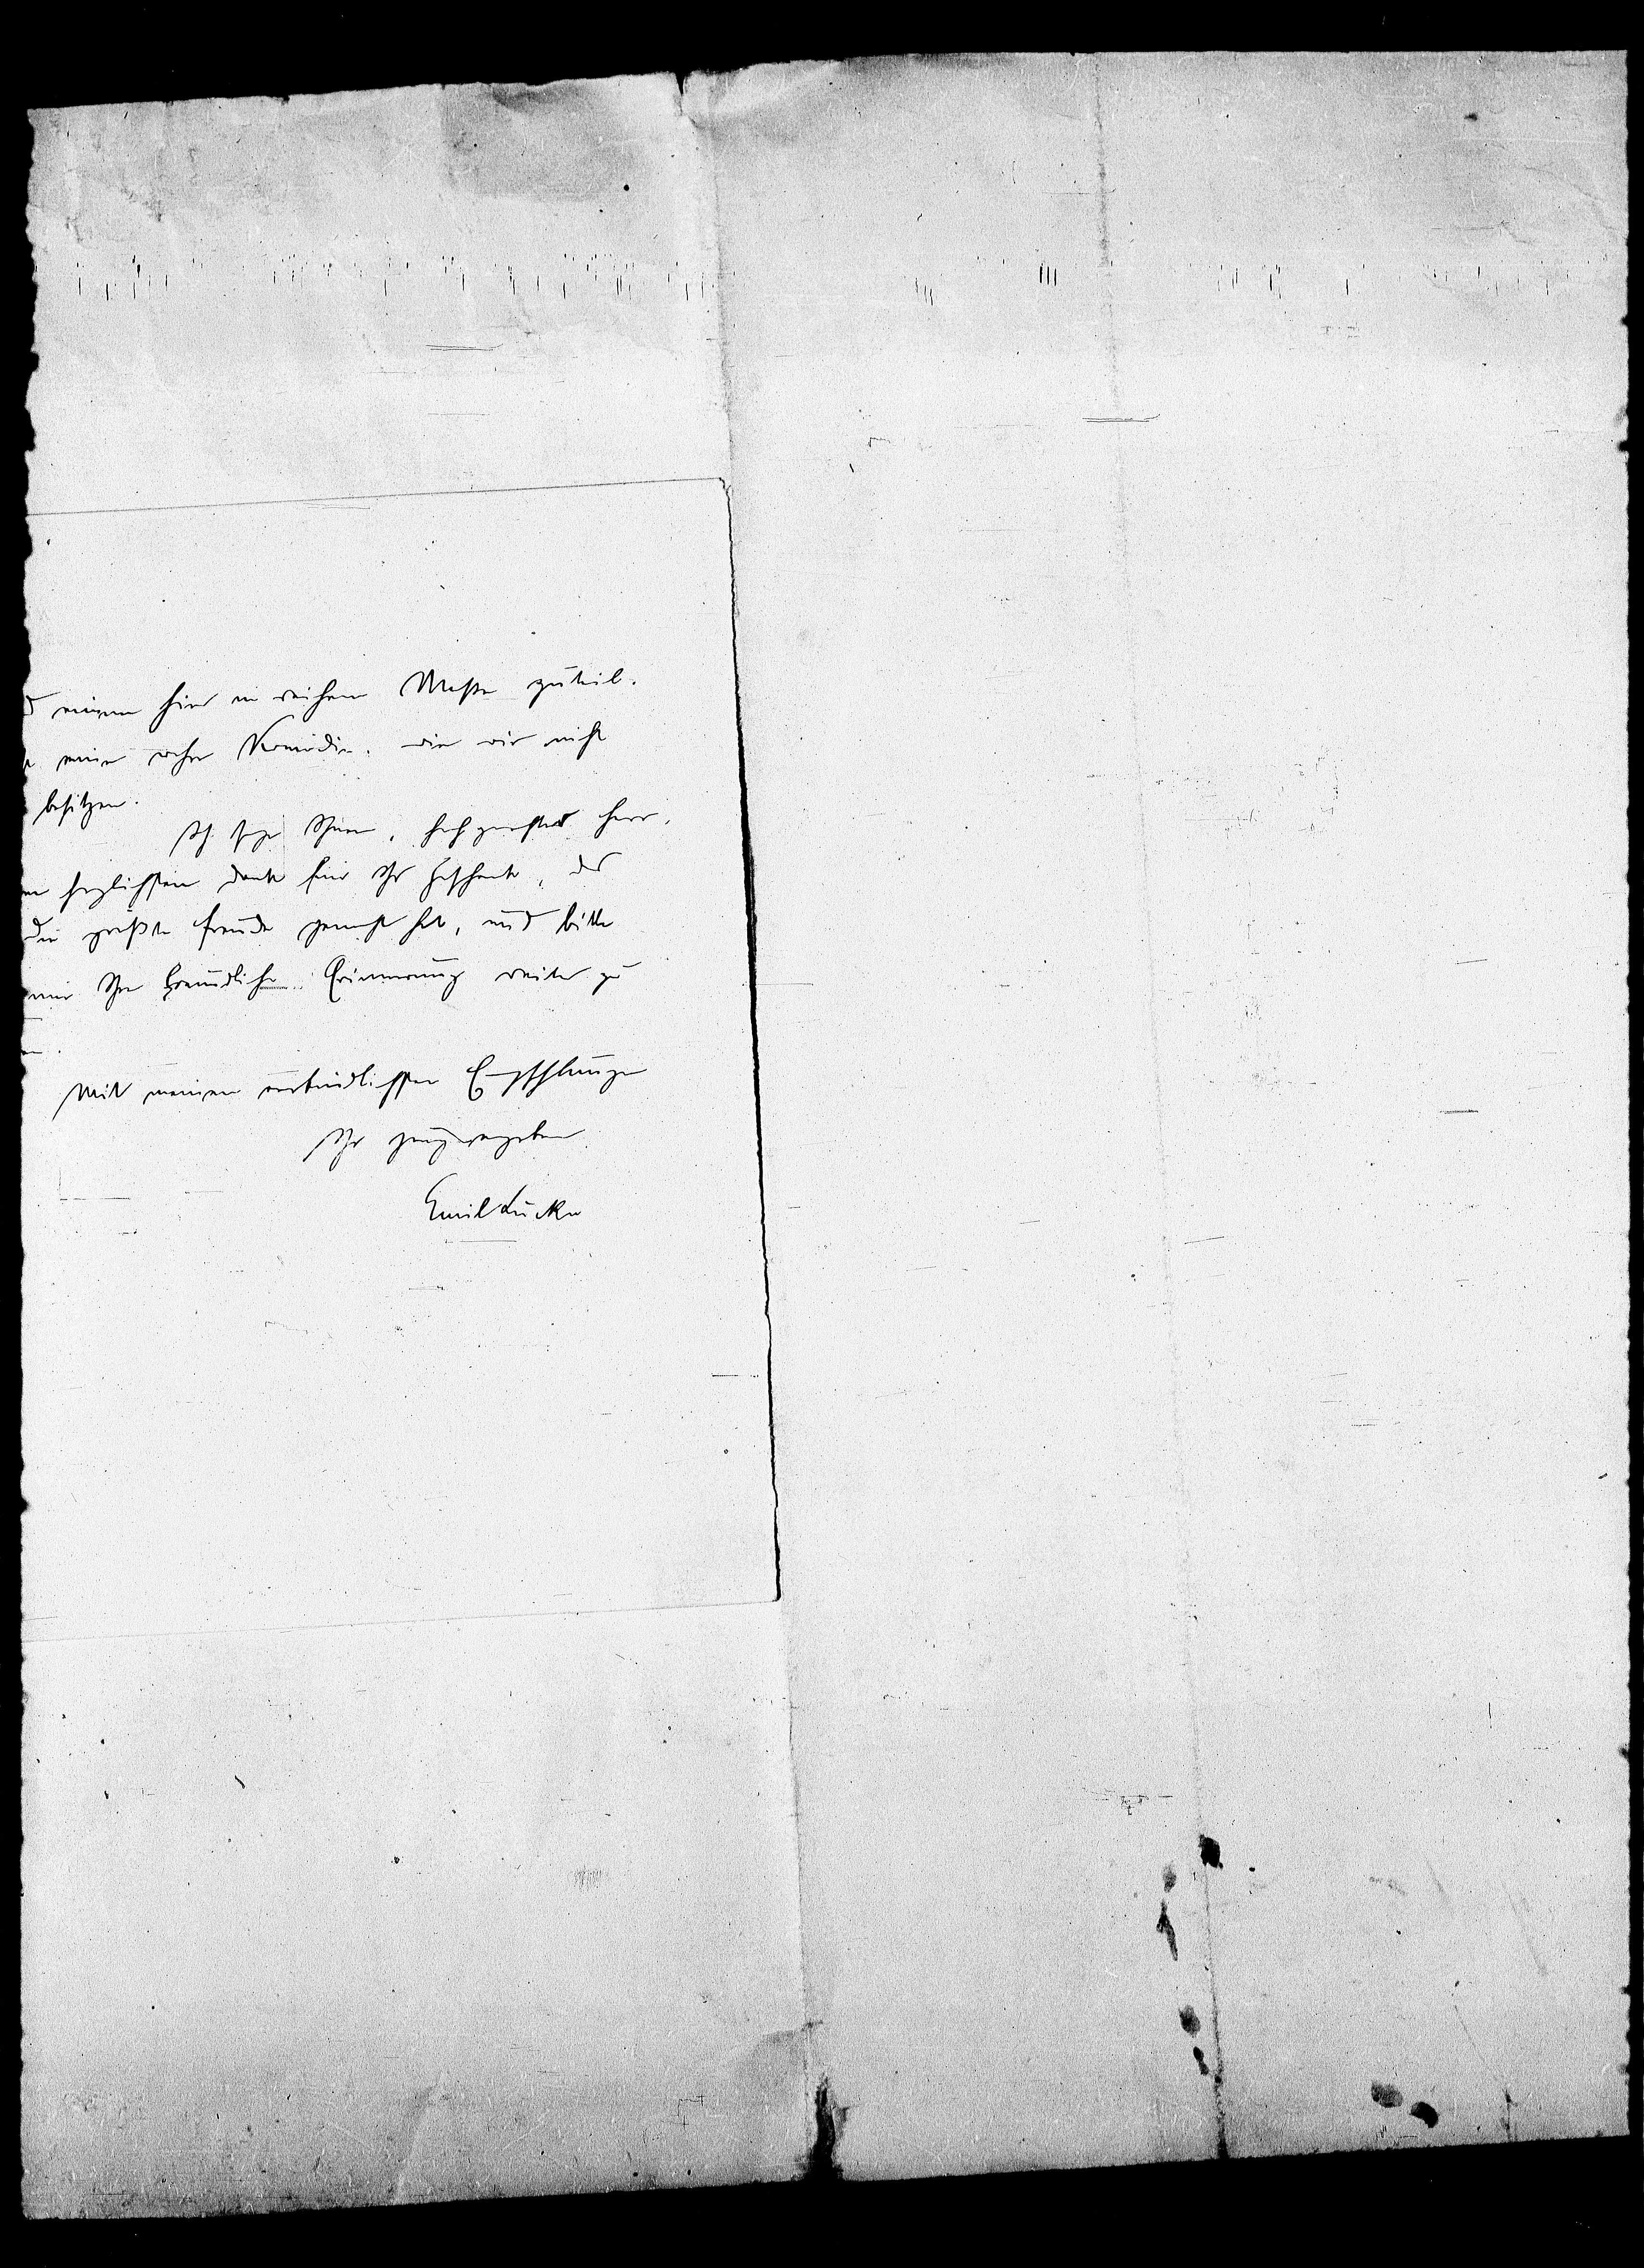 einem hier in reichem Maße zuteil.
eine rohe Komödie, wie wir nicht
besitzen.
Ich sage Ihnen, hochgeehrter Herr,
herzlichsten Dank für Ihr Geschenk, das
die größte Freude gemacht hat, und bitte
mir Ihre freundliche Erinnerung weiter zu
Mit meinen verbindlichsten Empfehlungen
Ihr ganz ergebener
Emil Lucka